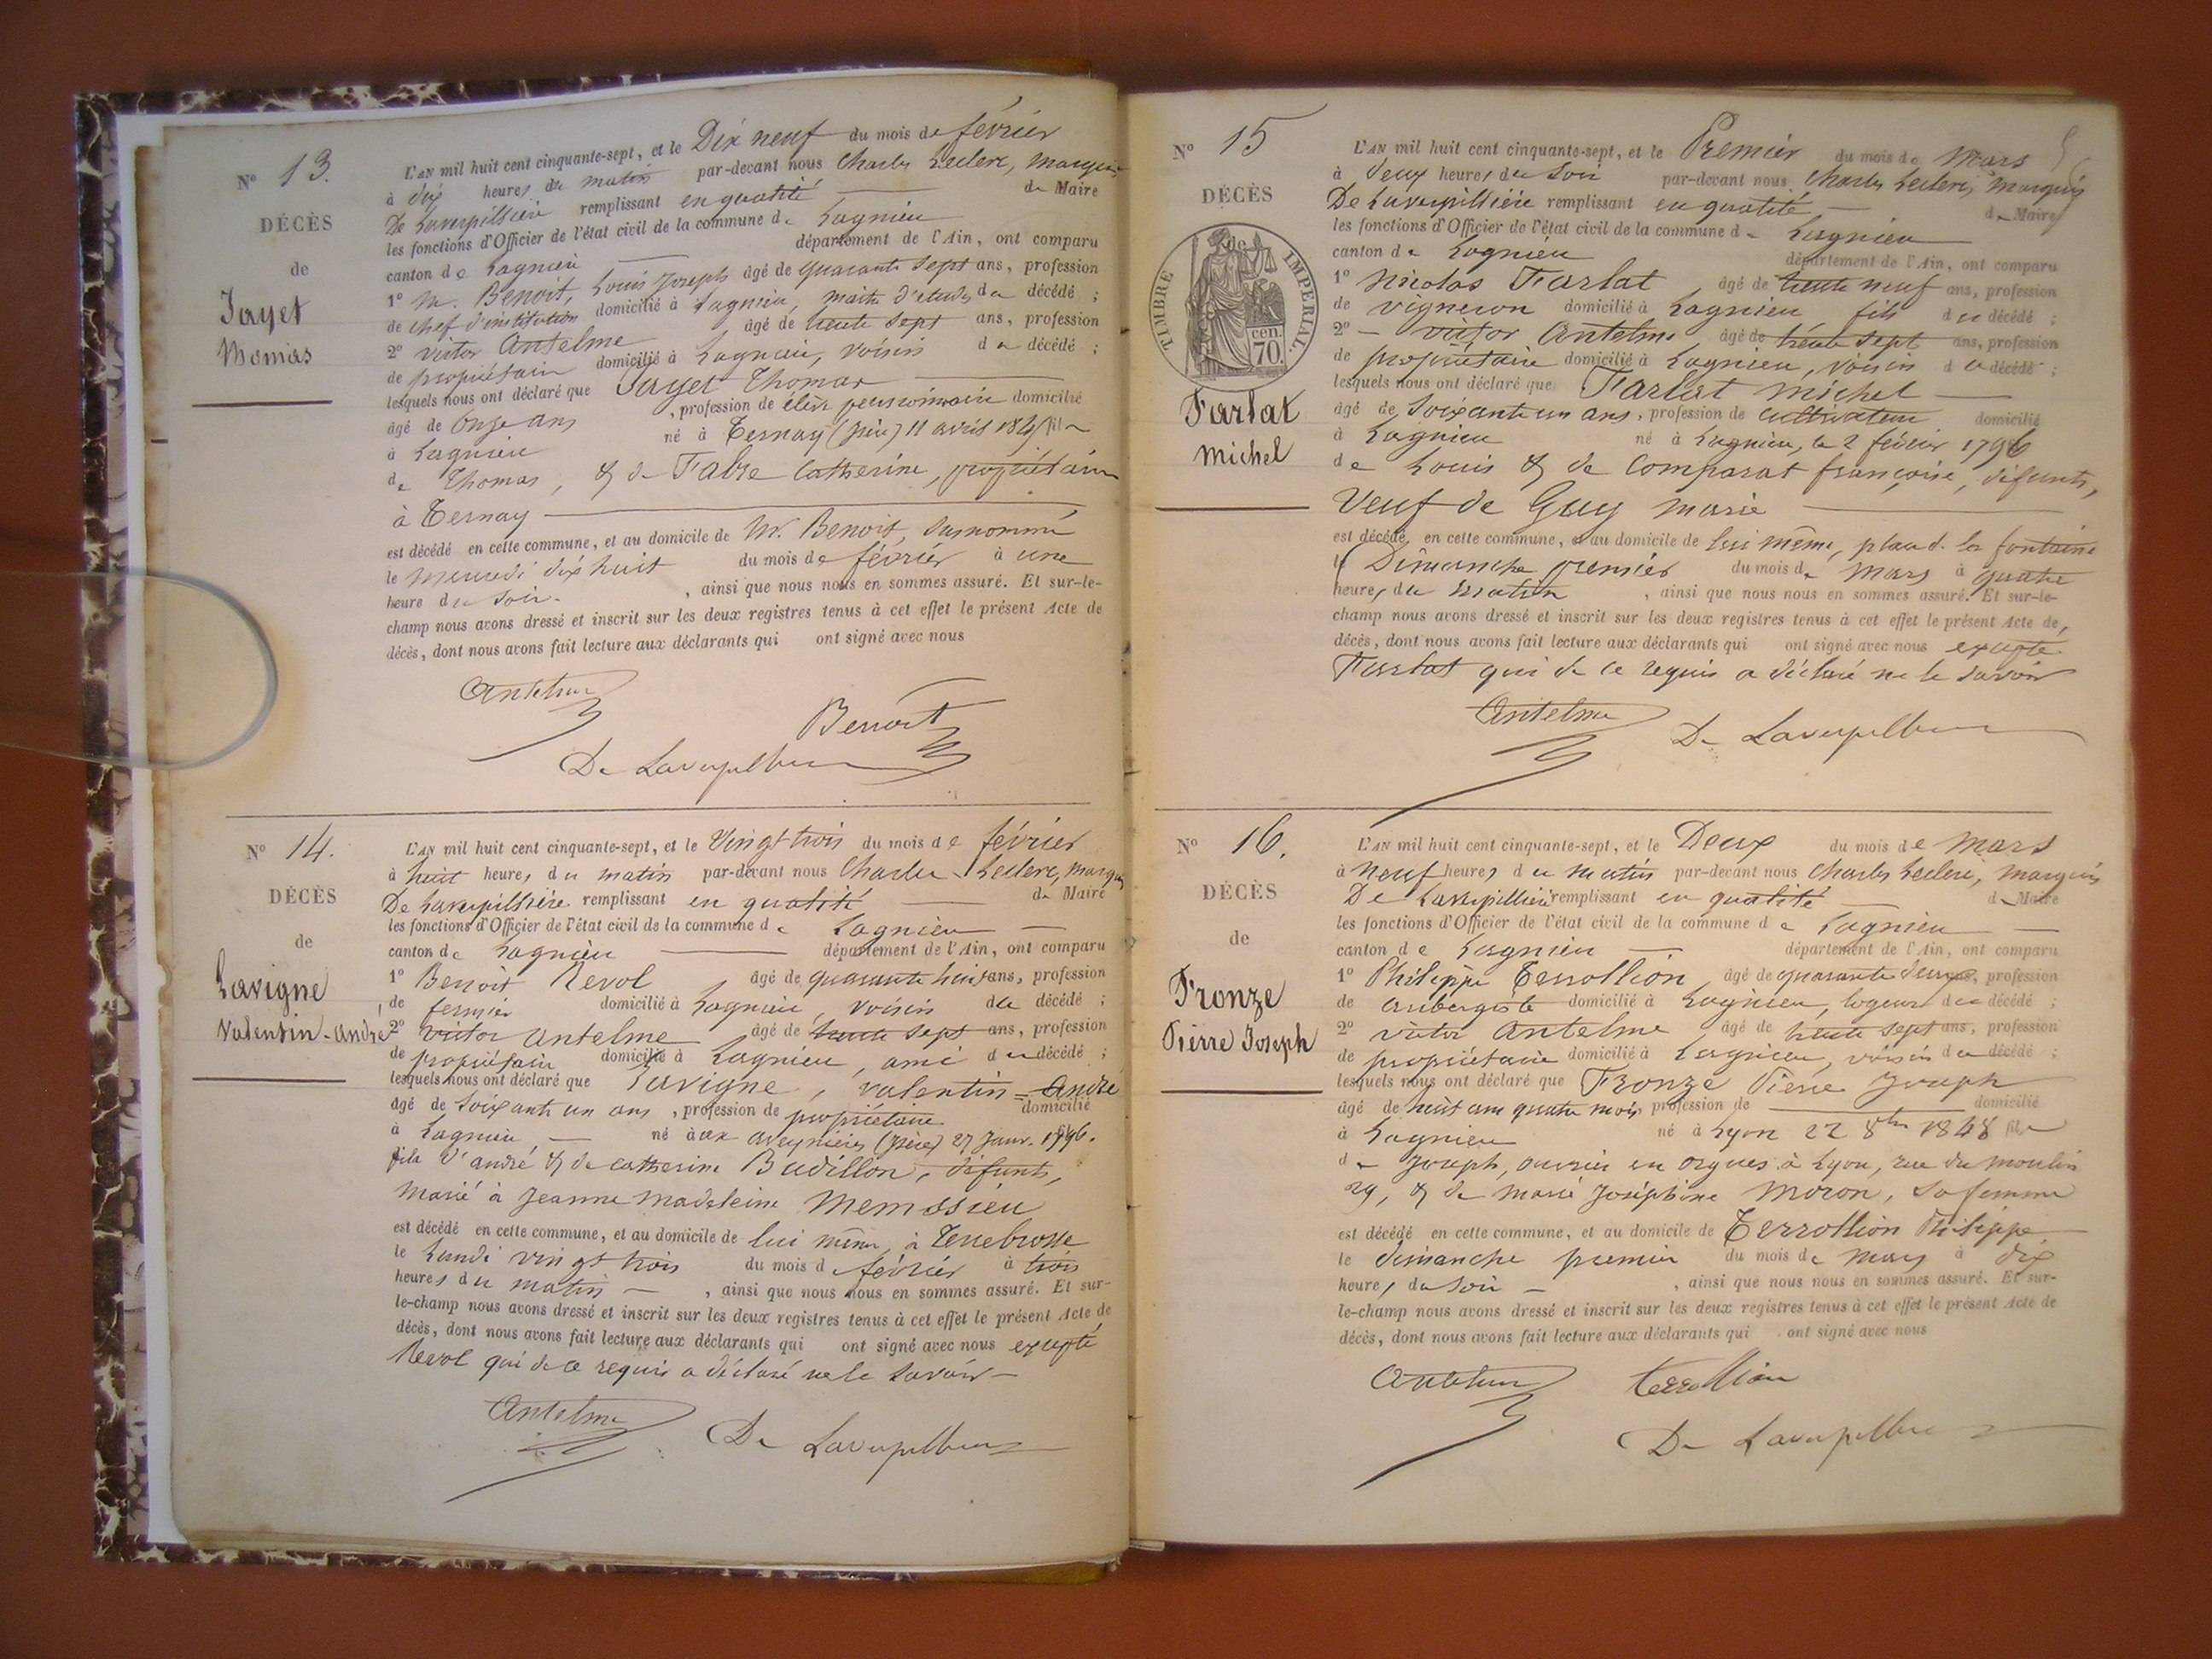 N° 13.
DÉCÈS
de
Jayet
Thomas
L'AN mil huit cent cinquante-sept, et le Dix neuf du mois de février
à dix heures du matin par-devant nous Charles Leclerc, marquis
De Laverpillière remplissant en qualité de Maire
les fonctions d'Officier de l'état civil de la commune de Lagnieu
canton de Lagnieu département de l'Ain, ont comparu
1° M. Benoit, Louis Joseph âgé de quarante sept ans, profession
de chef d'institution domicilié à Lagnieu, maître d'études du décédé ;
2° Victor Antelme âgé de trente sept ans, profession
de propriétaire domicilié à Lagnieu, voisin du décédé ;
lesquels nous ont déclaré que Jayet Thomas
âgé de onze ans, profession de élève pensionnaire domicilié
à Lagnieu né à Ternay (Isère) 11 avril fils
de Thomas, & de Fabre Catherine, propriétaire
à Ternay
est décédé en cette commune, et au domicile de Mr. Benoit, susnommé
le mercredi dix huit du mois de février à une
heure du soir. , ainsi que nous nous en sommes assuré. Et sur-le-
champ nous avons dressé et inscrit sur les deux registres tenus à cet effet le présent Acte de
décès, dont nous avons fait lecture aux déclarants qui ont signé avec nous
Antelme
Benoit
De Laverpillière
N° 14.
DÉCÈS
de
Lavigne
Valentin-André
L'AN mil huit cent cinquante-sept, et le Vingt trois du mois de février
à huit heures du matin par-devant nous Charles Leclerc, marquis
De Laverpillière remplissant en qualité de Maire
les fonctions d'Officier de l'état civil de la commune de Lagnieu
canton de Lagnieu département de l'Ain, ont comparu
1° Benoit Revol âgé de quarante huit ans, profession
de fermier domicilié à Lagnieu, voisin du décédé ;
2° Victor Antelme âgé de trente sept ans, profession
de propriétaire domicilié à Lagnieu, ami du décédé ;
lesquels nous ont déclaré que Lavigne, Valentin = André
âgé de soixante un ans, profession de propriétaire domicilié
à Lagnieu, né à aux Aveynières (Isère) 27 Janv. 1796.
fils d'André & de Catherine Budillon, défunts,
marié à Jeanne Madeleine Memssieu
est décédé en cette commune, et au domicile de lui même, à
le Lundi vingt trois du mois de février à trois
heures du matin , ainsi que nous nous en sommes assuré. Et sur-
le-champ nous avons dressé et inscrit sur les deux registres tenus à cet effet le présent Acte de
décès, dont nous avons fait lecture aux déclarants qui ont signé avec nous excepté
Revol qui de ce requis a déclaré ne le savoir
Antelme
De Laverpillière
N° 15
DÉCÈS
de
TIMBRE IMPERIAL.
cen.
70.
Farlat
Michel
L'AN mil huit cent cinquante-sept, et le Premier du mois de Mars
à deux heures du soir par-devant nous Charles Leclerc, marquis
De Laverpillière remplissant en qualité de Maire
les fonctions d'Officier de l'état civil de la commune de Lagnieu
canton de Lagnieu département de l'Ain, ont comparu
1° Nicolas Farlat âgé de trente neuf ans, profession
de vigneron domicilié à Lagnieu fils du décédé ;
2° Victor Antelme âgé de trente sept ans, profession
de propriétaire domicilié à Lagnieu, voisin du décédé ;
lesquels nous ont déclaré que Farlat Michel
âgé de soixante un ans, profession de cultivateur domicilié
à Lagnieu né à Lagnieu, le 2 février 1796
de Louis & de Comparat françoise, défunts,
Veuf de Guy Marie
est décédé en cette commune, et au domicile de lui même, place de la fontaine
le Dimanche premier du mois de Mars à quatre
heures du matin , ainsi que nous nous en sommes assuré. Et sur-le-
champ nous avons dressé et inscrit sur les deux registres tenus à cet effet le présent Acte de
décès, dont nous avons fait lecture aux déclarants qui ont signé avec nous excepté
Farlat qui de ce requis a déclaré ne le savoir
Antelme
De Laverpillière
N° 16.
DÉCÈS
de
Fronze
Pierre Joseph
L'AN mil huit cent cinquante-sept, et le Deux du mois de Mars
à Neuf heures du matin par-devant nous Charles Leclerc, marquis
De Laverpillière remplissant en qualité de Maire
les fonctions d'Officier de l'état civil de la commune de Lagnieu
canton de Lagnieu département de l'Ain, ont comparu
1° Philippe Terrollion âgé de quarante deux ans, profession
de aubergiste domicilié à Lagnieu, logeur du décédé ;
2° Victor Antelme âgé de trente sept ans, profession
de propriétaire domicilié à Lagnieu, voisin du décédé ;
lesquels nous ont déclaré que Fronze Pierre Joseph
âgé de huit ans quatre mois profession de domicilié
à Lagnieu né à Lyon 22 8bre 1848 fils
de Joseph, ouvrier en orgues à Lyon, rue du moulin
29, & de Marie Joséphine Moron, sa femme
est décédé en cette commune, et au domicile de Terrollion Philippe
le dimanche premier du mois de Mars à dix
heures du soir , ainsi que nous nous en sommes assuré. Et sur-
le-champ nous avons dressé et inscrit sur les deux registres tenus à cet effet le présent Acte de
décès, dont nous avons fait lecture aux déclarants qui ont signé avec nous
Antelme
Terrollion
De Laverpillière